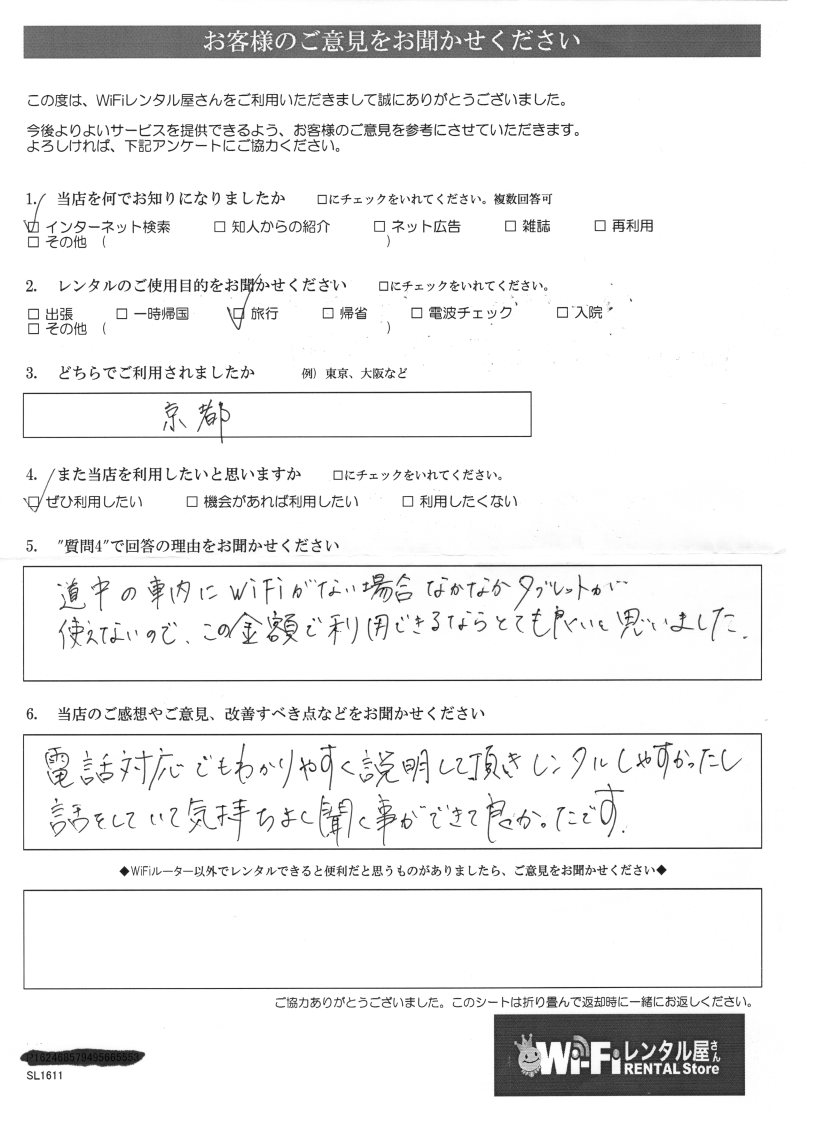 お客様のご意見をお聞かせください
この度は、WiFiレンタル屋さんをご利用いただきまして誠にありがとうございました。
今後よりよいサービスを提供できるよう、お客様のご意見を参考にさせていただきます。
よろしければ、下記アンケートにご協力ください。
1. 当店を何でお知りになりましたか □にチェックをいれてください。複数回答可
☑ インターネット検索 □ 知人からの紹介 □ ネット広告 □ 雑誌 □ 再利用
□ その他 ( )
2. レンタルのご使用目的をお聞かせください □にチェックをいれてください。
□ 出張 □ 一時帰国 ☑ 旅行 □ 帰省 □ 電波チェック □ 入院
□ その他 ( )
3. どちらでご利用されましたか 例) 東京、大阪など
京都
4. また当店を利用したいと思いますか □にチェックをいれてください。
☑ ぜひ利用したい □ 機会があれば利用したい □ 利用したくない
5. "質問4"で回答の理由をお聞かせください
道中の車内にWiFiがない場合なかなかタブレットが
使えないので、この金額で利用できるならとても良いと思いました。
6. 当店のご感想やご意見、改善すべき点などをお聞かせください
電話対応でもわかりやすく説明して頂きレンタルしやすかったし
話をしていて気持ちよく聞く事ができて良かったです。
◆WiFiルーター以外でレンタルできると便利だと思うものがありましたら、ご意見をお聞かせください◆
ご協力ありがとうございました。このシートは折り畳んで返却時に一緒にお返しください。
SL1611
Wi-Fi レンタル屋さん
RENTAL Store